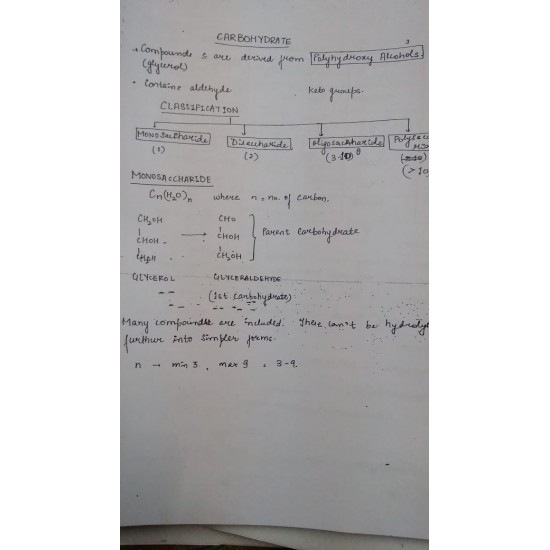 CARBOHYDRATE
→ Compounds & are derived from Polyhydroxy Alcohols.
(glycerol)
• Contains aldehyde Keto groups.
CLASSIFICATION
Monosaccharide Disaccharide Oligosaccharide
(1) (2) (3-10) (>10
MONOSACCHARIDE
Cn(H2O)n where n = no. of carbon.
CH2OH CHO
CHOH → CHOH Parent Carbohydrate
CH2OH CH2OH
GLYCEROL GLYCERALDEHYDE
(1st Carbohydrate)
Many compounds are included. These can't be hydrolyz
further into simpler forms.
n → min 3, max 9 = 3-9.